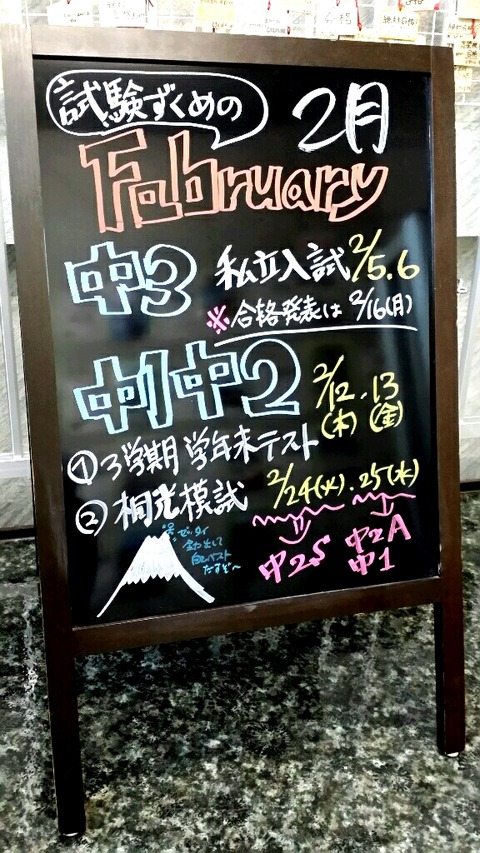 試験ずくめの
2月
February
中3 私立入試 2/5.6
※合格発表は 2/16(月)
中1中2 2/12.13
(木)(金)
①3学期 学年末テスト
②桐光模試 2/24(火).25(水)
中2S 中2A
中1
ゼッタイ
全力出して
自己ベスト
だすぞ〜